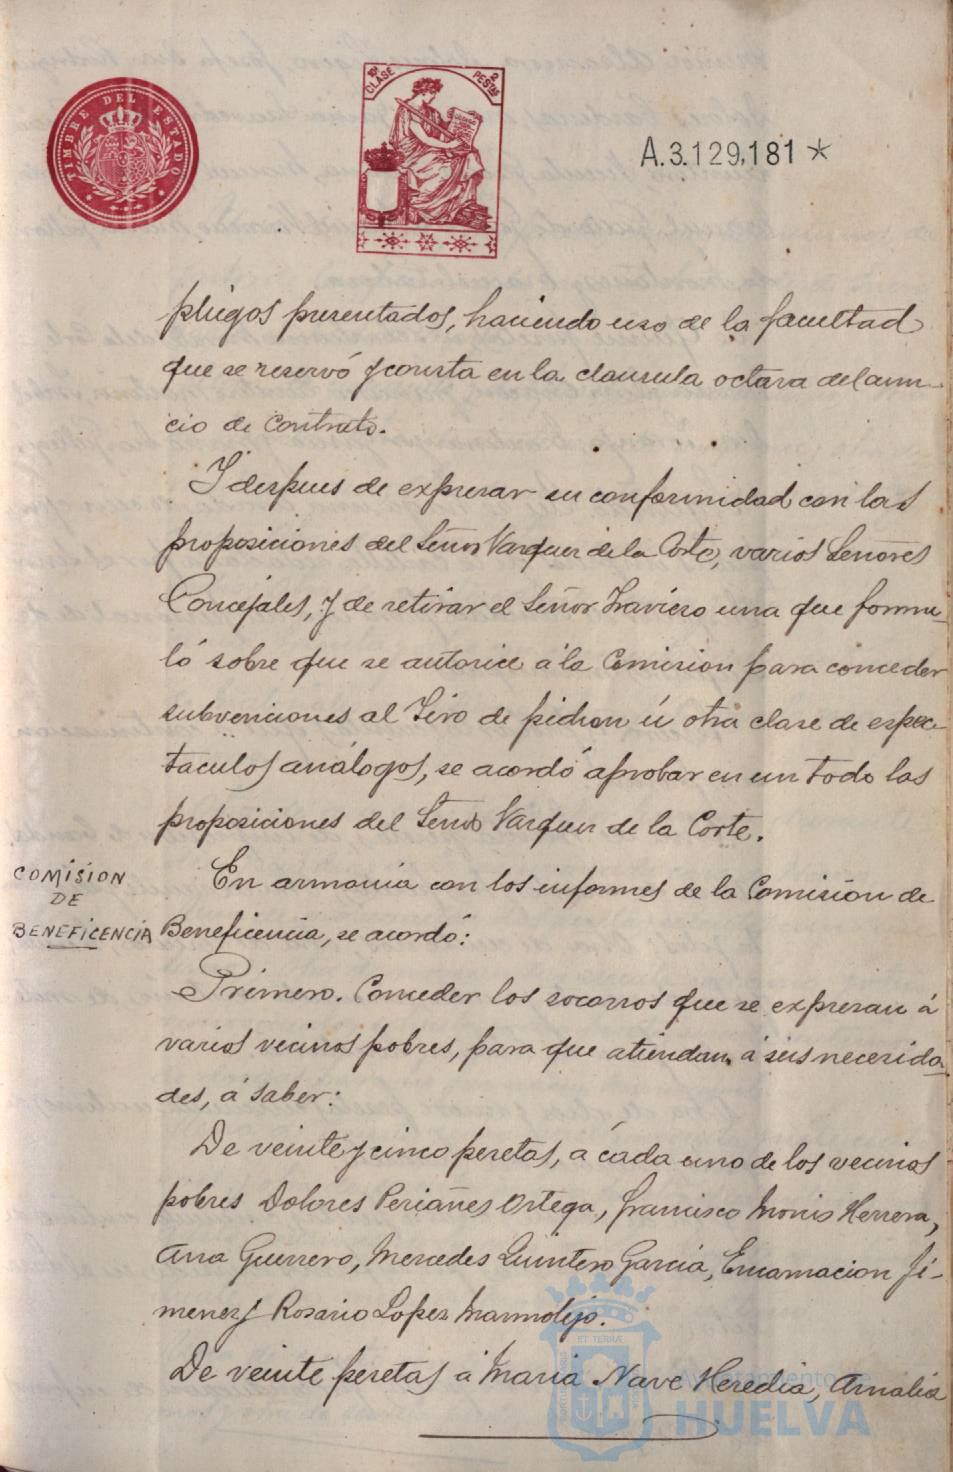 TIMBRE DEL ESTADO
10ª CLASE 2 PESTAS
A.3.129,181 *
pliegos presentados, haciendo uso de la facultad
que se reservó y consta en la clausula octava del anun-
cio de Contrato.
Y despues de expresar su conformidad con las
proposiciones del Señor Vazquez de la Corte, varios Señores
Concejales, y de retirar el Señor Travieso una que formu-
ló sobre que se autorice á la Comision para conceder
subvenciones al Tiro de pichon ú otra clase de espec-
taculos análogos, se acordó aprobar en un todo las
proposiciones del Señor Vazquez de la Corte.
COMISION
DE
BENEFICENCIA
En armonia con los informes de la Comisión de
Beneficencia, se acordó:
Primero. Conceder los socorros que se expresan á
varios vecinos pobres, para que atiendan á sus necesida-
des, á saber:
De veinte y cinco pesetas, á cada uno de los vecinos
pobres Dolores Periañes Ortega, Francisco Monis Herrera,
Ana Guerrero, Mercedes Quintero Garcia, Encarnacion Ji-
menez y Rosario Lopez Marmolejo.
De veinte pesetas á Maria Nave Heredia, Amalia
Ayuntamiento de
HUELVA